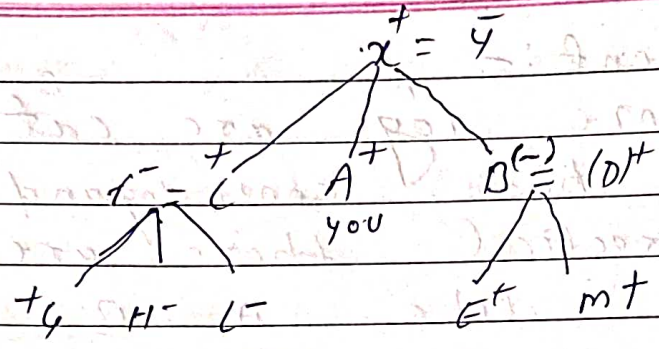 x⁺ = ȳ
I⁻ = C⁺ A⁺ B(-) = (D)⁺
you
+G H⁻ L⁻ E⁺ m+